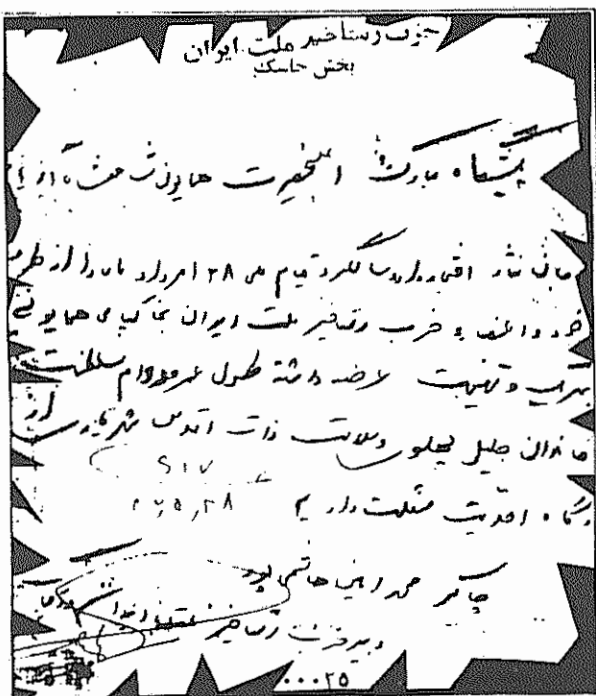 حزب رستاخیز ملت ایران
بخش جاسک
پیشگاه مبارک اعلیحضرت همایون شاهنشاه آریا
جان نثار افتخار دارد سالگرد قیام ملی ۲۸ امرداد ماه را از طرف
خود و اعضاء حزب رستاخیز ملت ایران بخاکپای همایونی
تبریک و تهنیت عرضه داشته طول عمر و دوام سلطنت
خاندان جلیل پهلوی و سلامت ذات اقدس شهریاری از
درگاه احدیت مسئلت داریم
چاکر محمد امین هاشمی پور
دبیر حزب رستاخیز
۰۰۰۲۵